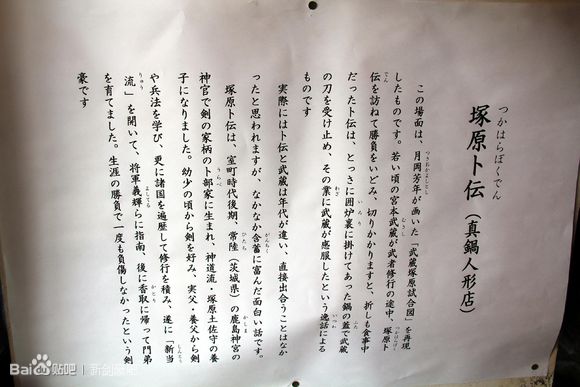 つかはらぼくでん
塚原卜伝(真鍋人形店)
つきおかよしとし
この場面は、月岡芳年が画いた「武蔵塚原試合図」を再現
むさし
したものです。若い頃の宮本武蔵が武者修行の途中、塚原卜
でん
伝を訪ねて勝負をいどみ、切りかかりますと、折しも食事中
いろり ふた
だった卜伝は、とっさに囲炉裏に掛けてあった鍋の蓋で武蔵
わざ いつわ
の刀を受け止め、その業に武蔵が感服したという逸話による
ものです
実際には卜伝と武蔵は年代が違い、直接出合うことはなか
がんちく
ったと思われますが、なかなか含蓄に富んだ面白い話です。
ひたち かしま
塚原卜伝は、室町時代後期、常陸(茨城県)の鹿島神宮の
うらべ
神官で剣の家柄の卜部家に生まれ、神道流・塚原土佐守の養
子になりました。幼少の頃から剣を好み、実父・養父から剣
しんとう
や兵法を学び、更に諸国を遍歴して修行を積み、遂に「新当
りゅう よしてる かとり
流」を開いて、将軍義輝らに指南、後に香取に帰って門弟
を育てました。生涯の勝負で一度も負傷しなかったという剣
豪です
Bai du 贴吧